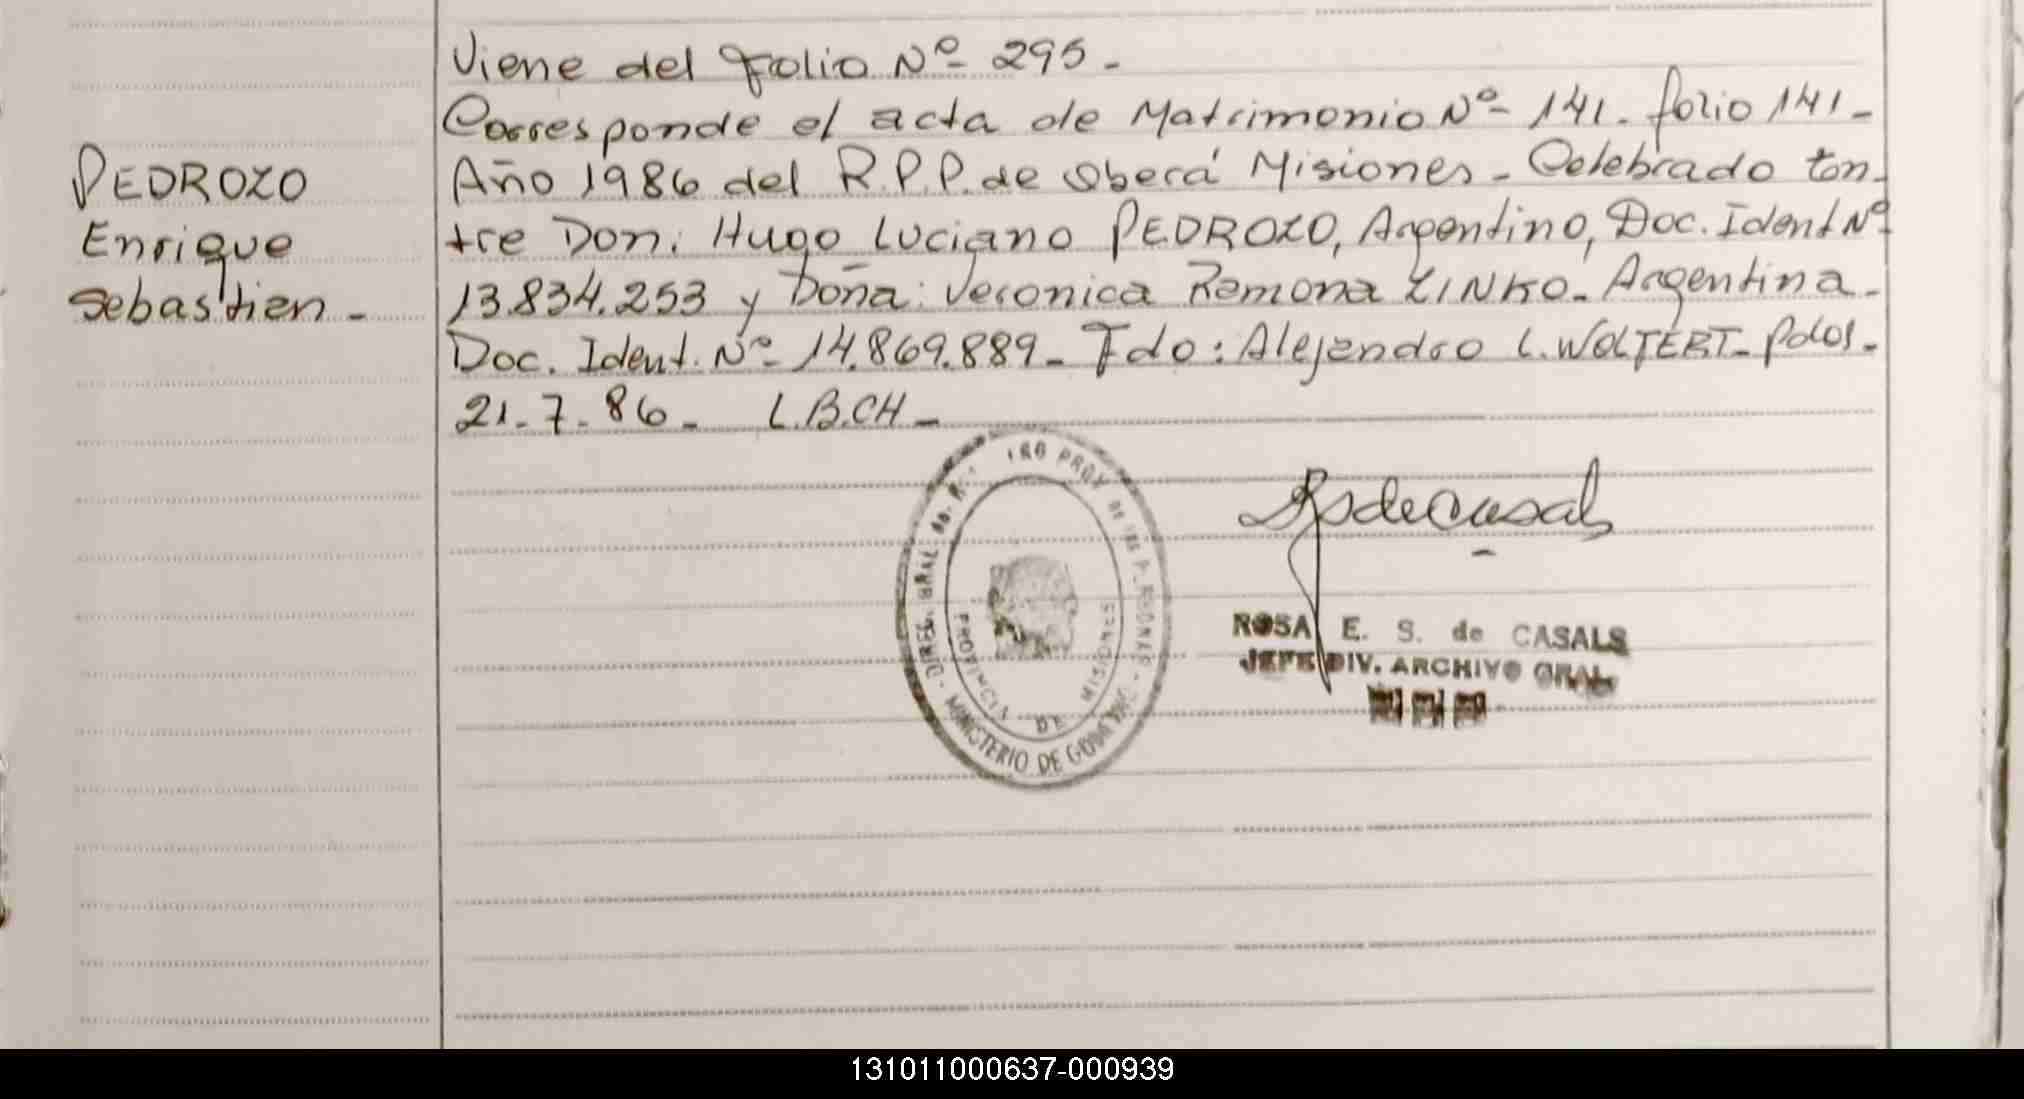 Viene del folio Nº 295-
Corresponde el acta de Matrimonio Nº- 141. folio 141-
PEDROZO
Año 1986 del R.P.P. de Oberá Misiones- Celebrado en-
Enrique
tre Don: Hugo Luciano PEDROZO, Argentino, Doc. Ident Nº
Sebastien-
13.834.253 y Doña: Veronica Ramona ZINKO- Argentina-
Doc. Ident. Nº- 14.869.889- Fdo: Alejandro L. WOLTERT- Pdas-
21-7-86- L.B.CH-
DIREC. GRAL. de R. PROV. DE LAS PERSONAS - MINISTERIO DE GOBIERNO
PROVINCIA DE MISIONES
ROSA E. S. de CASALS
JEFE DIV. ARCHIVO GRAL.
131011000637-000939